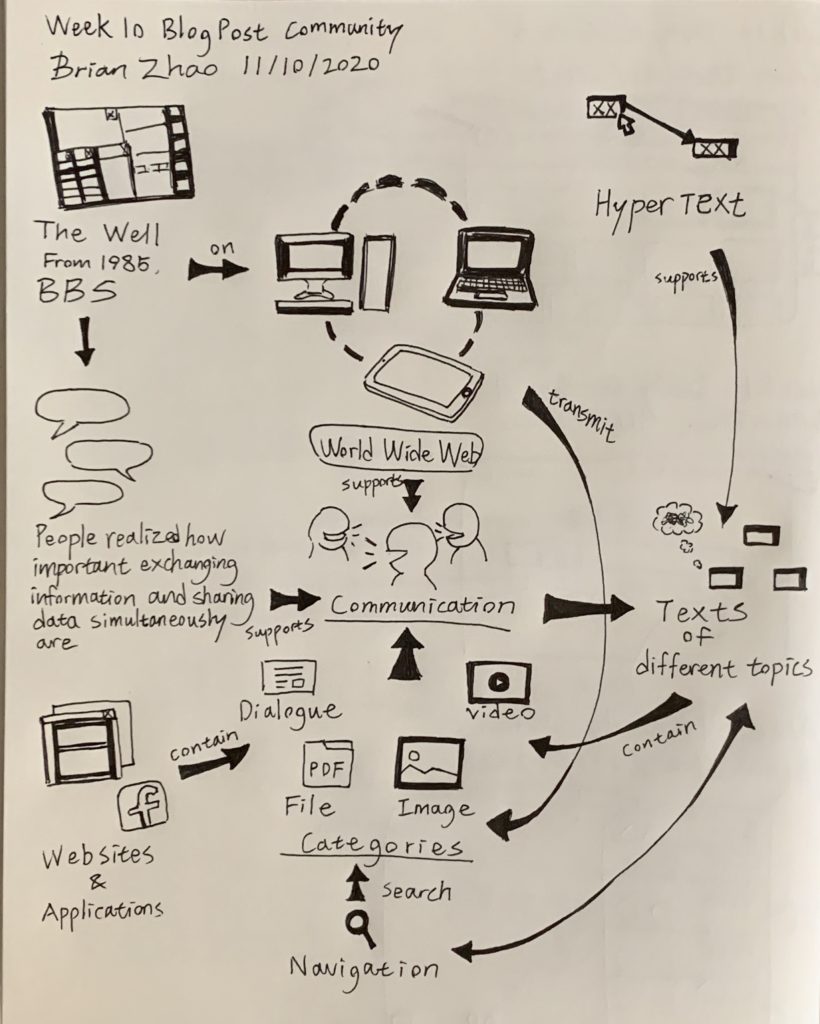 Week 10 Blog Post Community
Brian Zhao 11/10/2020
XX
XX
Hyper TEXT
The Well
From 1985,
BBS
on
supports
transmit
World Wide Web
supports
People realized how
important exchanging
information and sharing
data simultaneously
are
supports
Communication
Texts
of
different topics
Dialogue
video
contain
contain
PDF
File
Image
f
Categories
Websites
&
Applications
Search
Navigation